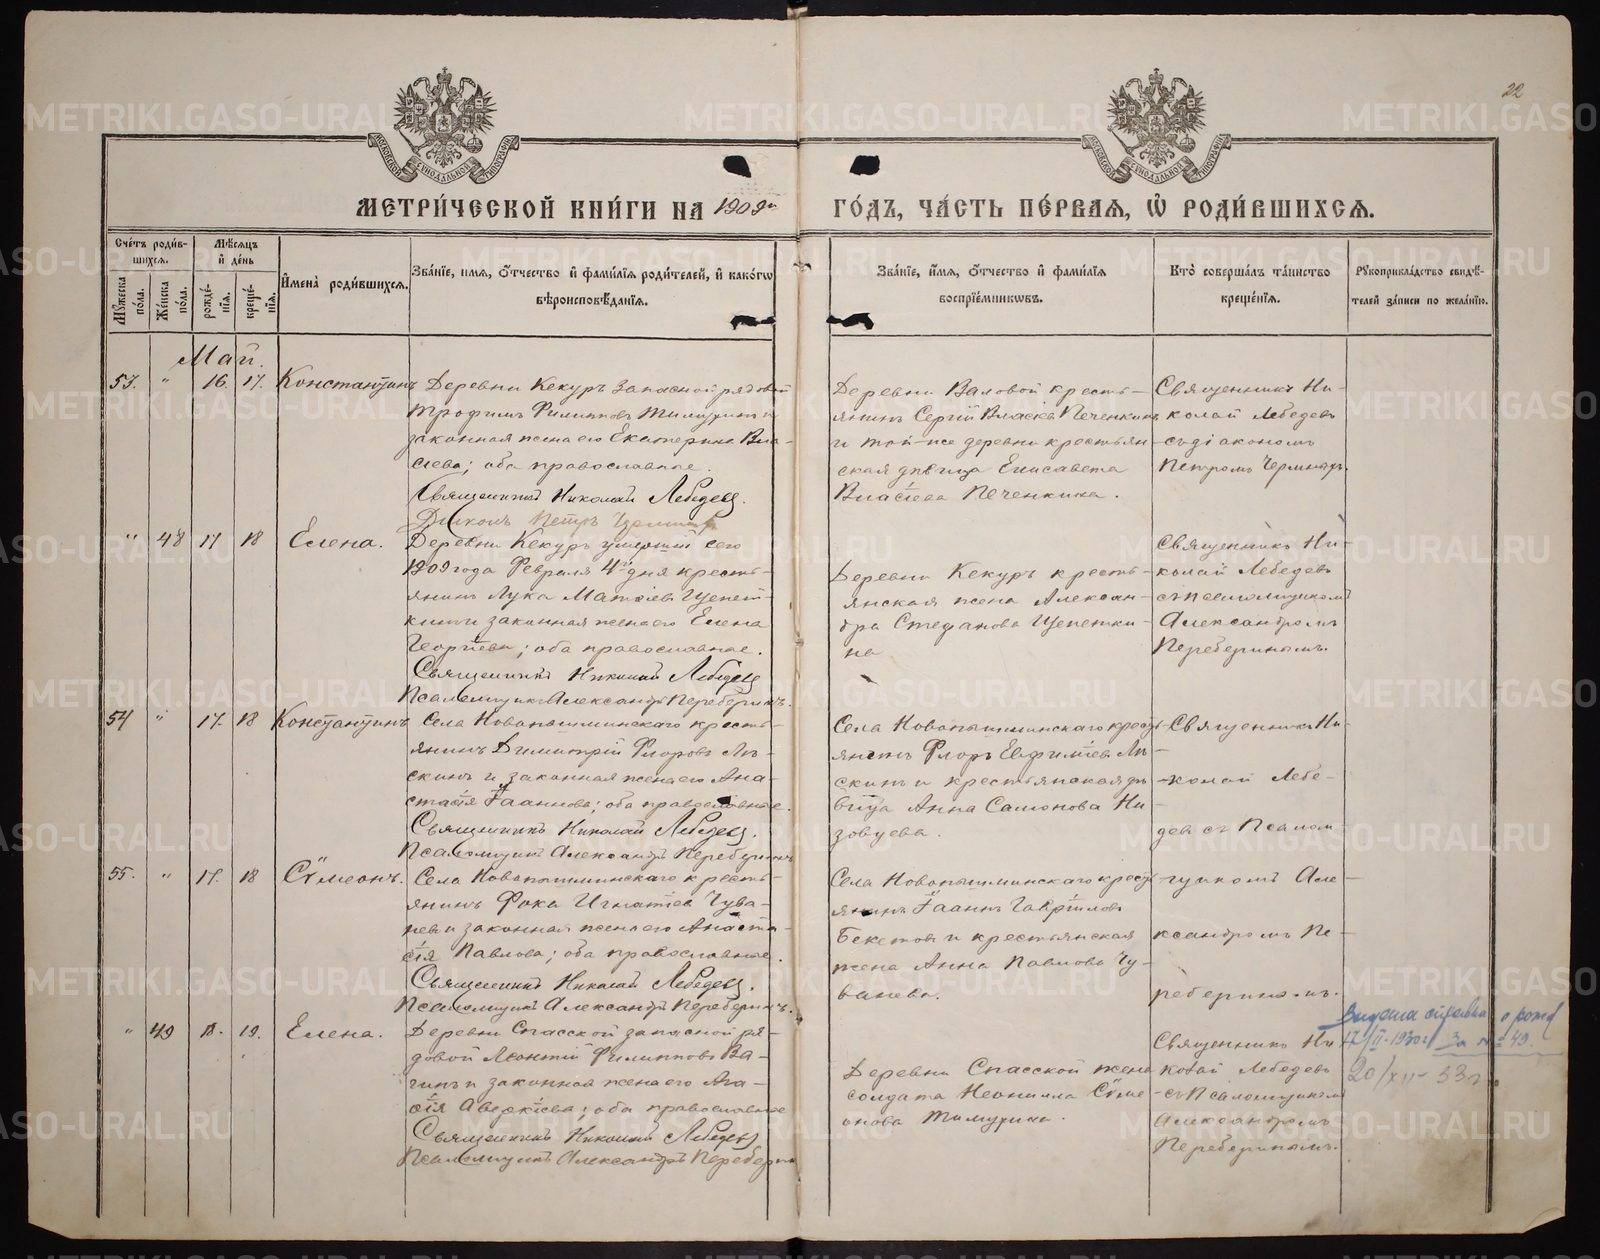 22
МЕТРИ́ЧЕСКОЙ КНИ́ГИ НА 1909й ГО́ДЪ, ЧА́СТЬ ПЕ́РВАЯ, Ѡ РОДИ́ВШИХСЯ.
Сче́тъ роди́вшихся.
Му́жеска по́ла.
Же́нска по́ла.
Мѣ́сяцъ и де́нь
рожде́нїя.
креще́нїя.
И҆мена̀ роди́вшихся.
Зва́нїе, имя, о́тчество и҆ фами́лїя роди́телей, и҆ како́гѡ вѣроисповѣ́данїя.
Зва́нїе, и҆́мя, о́тчество и҆ фами́лїя воспрїе́мникѡвъ.
Кто̀ соверша́лъ та́инство креще́нїя.
Рꙋкоприкла́дство свидѣ́телей за́писи по жела́нїю.
Май.
53. " 16. 17. Константинъ
Деревни Кекуръ запасной рядовой
Трофимъ Филипповъ
законная жена его Екатерина Вла-
сіева; оба православные.
Священникъ Николай Лебедевъ.
Діаконъ Петръ
Деревни Валовой кресть-
янинъ Сергій Власіевъ Печенкинъ
и той-же деревни крестьян-
ская дѣвица Елисавета
Власіева Печенкина.
Священникъ Ни-
колай Лебедевъ
съ діакономъ
Петромъ
" 48 17 18 Елена.
Деревни Кекуръ умершій сего
1909 года Февраля 4го дня кресть-
янинъ Лука Матѳіевъ Щепет-
кинъ и законная жена его Елена
Георгіева; оба православные.
Священникъ Николай Лебедевъ
Псаломщикъ Александръ Переберинъ.
Деревни Кекуръ кресть-
янская жена Алексан-
дра Стефанова Щепетки-
на
Священникъ Ни-
колай Лебедевъ
съ псаломщикомъ
Александромъ
Переберинымъ.
54 " 17. 18 Константинъ
Села Новопышминскаго кресть-
янинъ Димитрій Флоровъ Ля-
скинъ и законная жена его Ана-
стасія Іоаннова; оба православные.
Священникъ Николай Лебедевъ.
Псаломщикъ Александръ Переберинъ
Села Новопышминскаго кресть-
янинъ Флоръ Евфиміевъ Ля-
скинъ и крестьянская дѣ-
вица Анна Самонова Ни-
зовцева.
Священникъ Ни-
колай Лебе-
девъ съ Псалом-
55. " 17. 18 Сѵмеонъ.
Села Новопышминскаго кресть-
янинъ Фока Игнатіевъ Чува-
шевъ и законная жена его Анаста-
сія Павлова; оба православные.
Священникъ Николай Лебедевъ.
Псаломщикъ Александръ Переберинъ.
Села Новопышминскаго кресть-
янинъ Іоаннъ Гавріиловъ
Бекетовъ и крестьянская
жена Анна Павлова Чу-
вашева.
щикомъ Але-
ксандромъ Пе-
реберинымъ.
" 49 18. 19. Елена.
Деревни Спасской запасной ря-
довой Леонтій Филипповъ Ва-
гинъ и законная жена его Ага-
ѳія Аверкіева; оба православные
Священникъ Николай Лебедевъ
Псаломщикъ Александръ Переберинъ
Деревни Спасской жена
солдата Неонилла Сѵме-
онова
Священникъ Ни
колай Лебедевъ
съ Псаломщикомъ
Александромъ
Переберинымъ.
Выдана справка о рожд
17/II-1930г. За №49.
20/XII-33г.